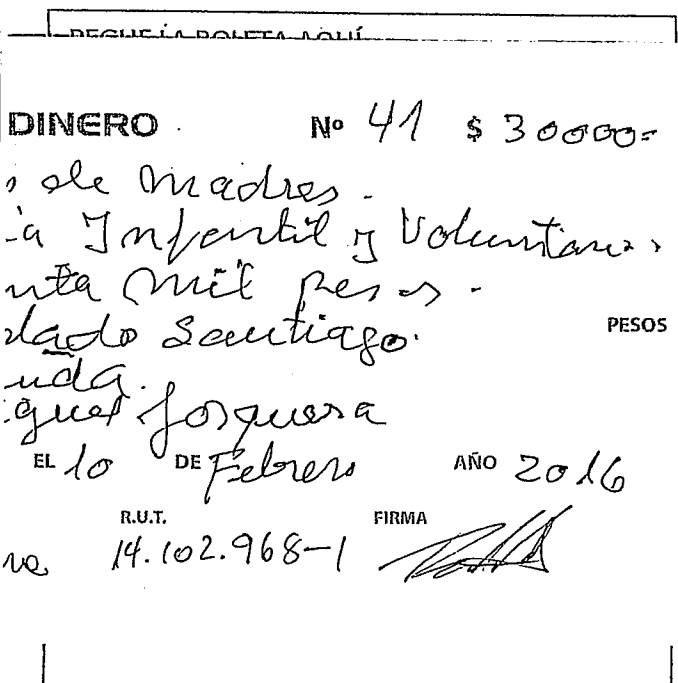 PEGUE LA BOLETA AQUÍ
DINERO Nº 41 $ 30000=
s de madres.
ia Infantil y Voluntario
nta mil pesos.
PESOS
dado Santiago.
uda.
guel Jorquera
EL 10 DE Febrero AÑO 2016
R.U.T. FIRMA
ra 14.102.968-1